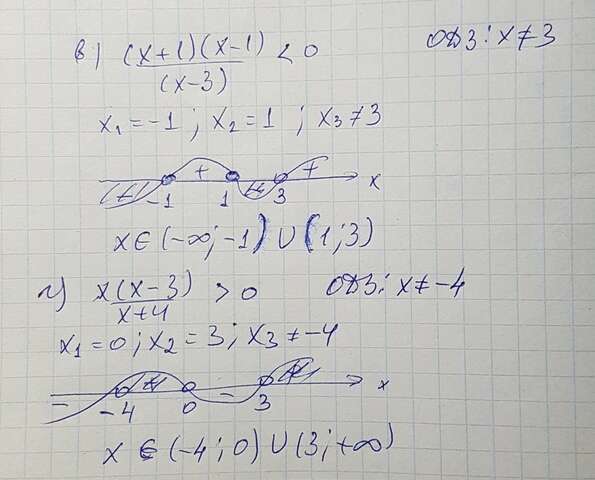 в) (x+1)(x-1)/(x-3) < 0 ОДЗ: x ≠ 3
x₁ = -1 ; x₂ = 1 ; x₃ ≠ 3
+ +
-1 1 3 x
x ∈ (-∞; -1) ∪ (1; 3)
г) x(x-3)/x+4 > 0 ОДЗ: x ≠ -4
x₁ = 0 ; x₂ = 3 ; x₃ ≠ -4
- + - +
-4 0 3 x
x ∈ (-4; 0) ∪ (3; +∞)